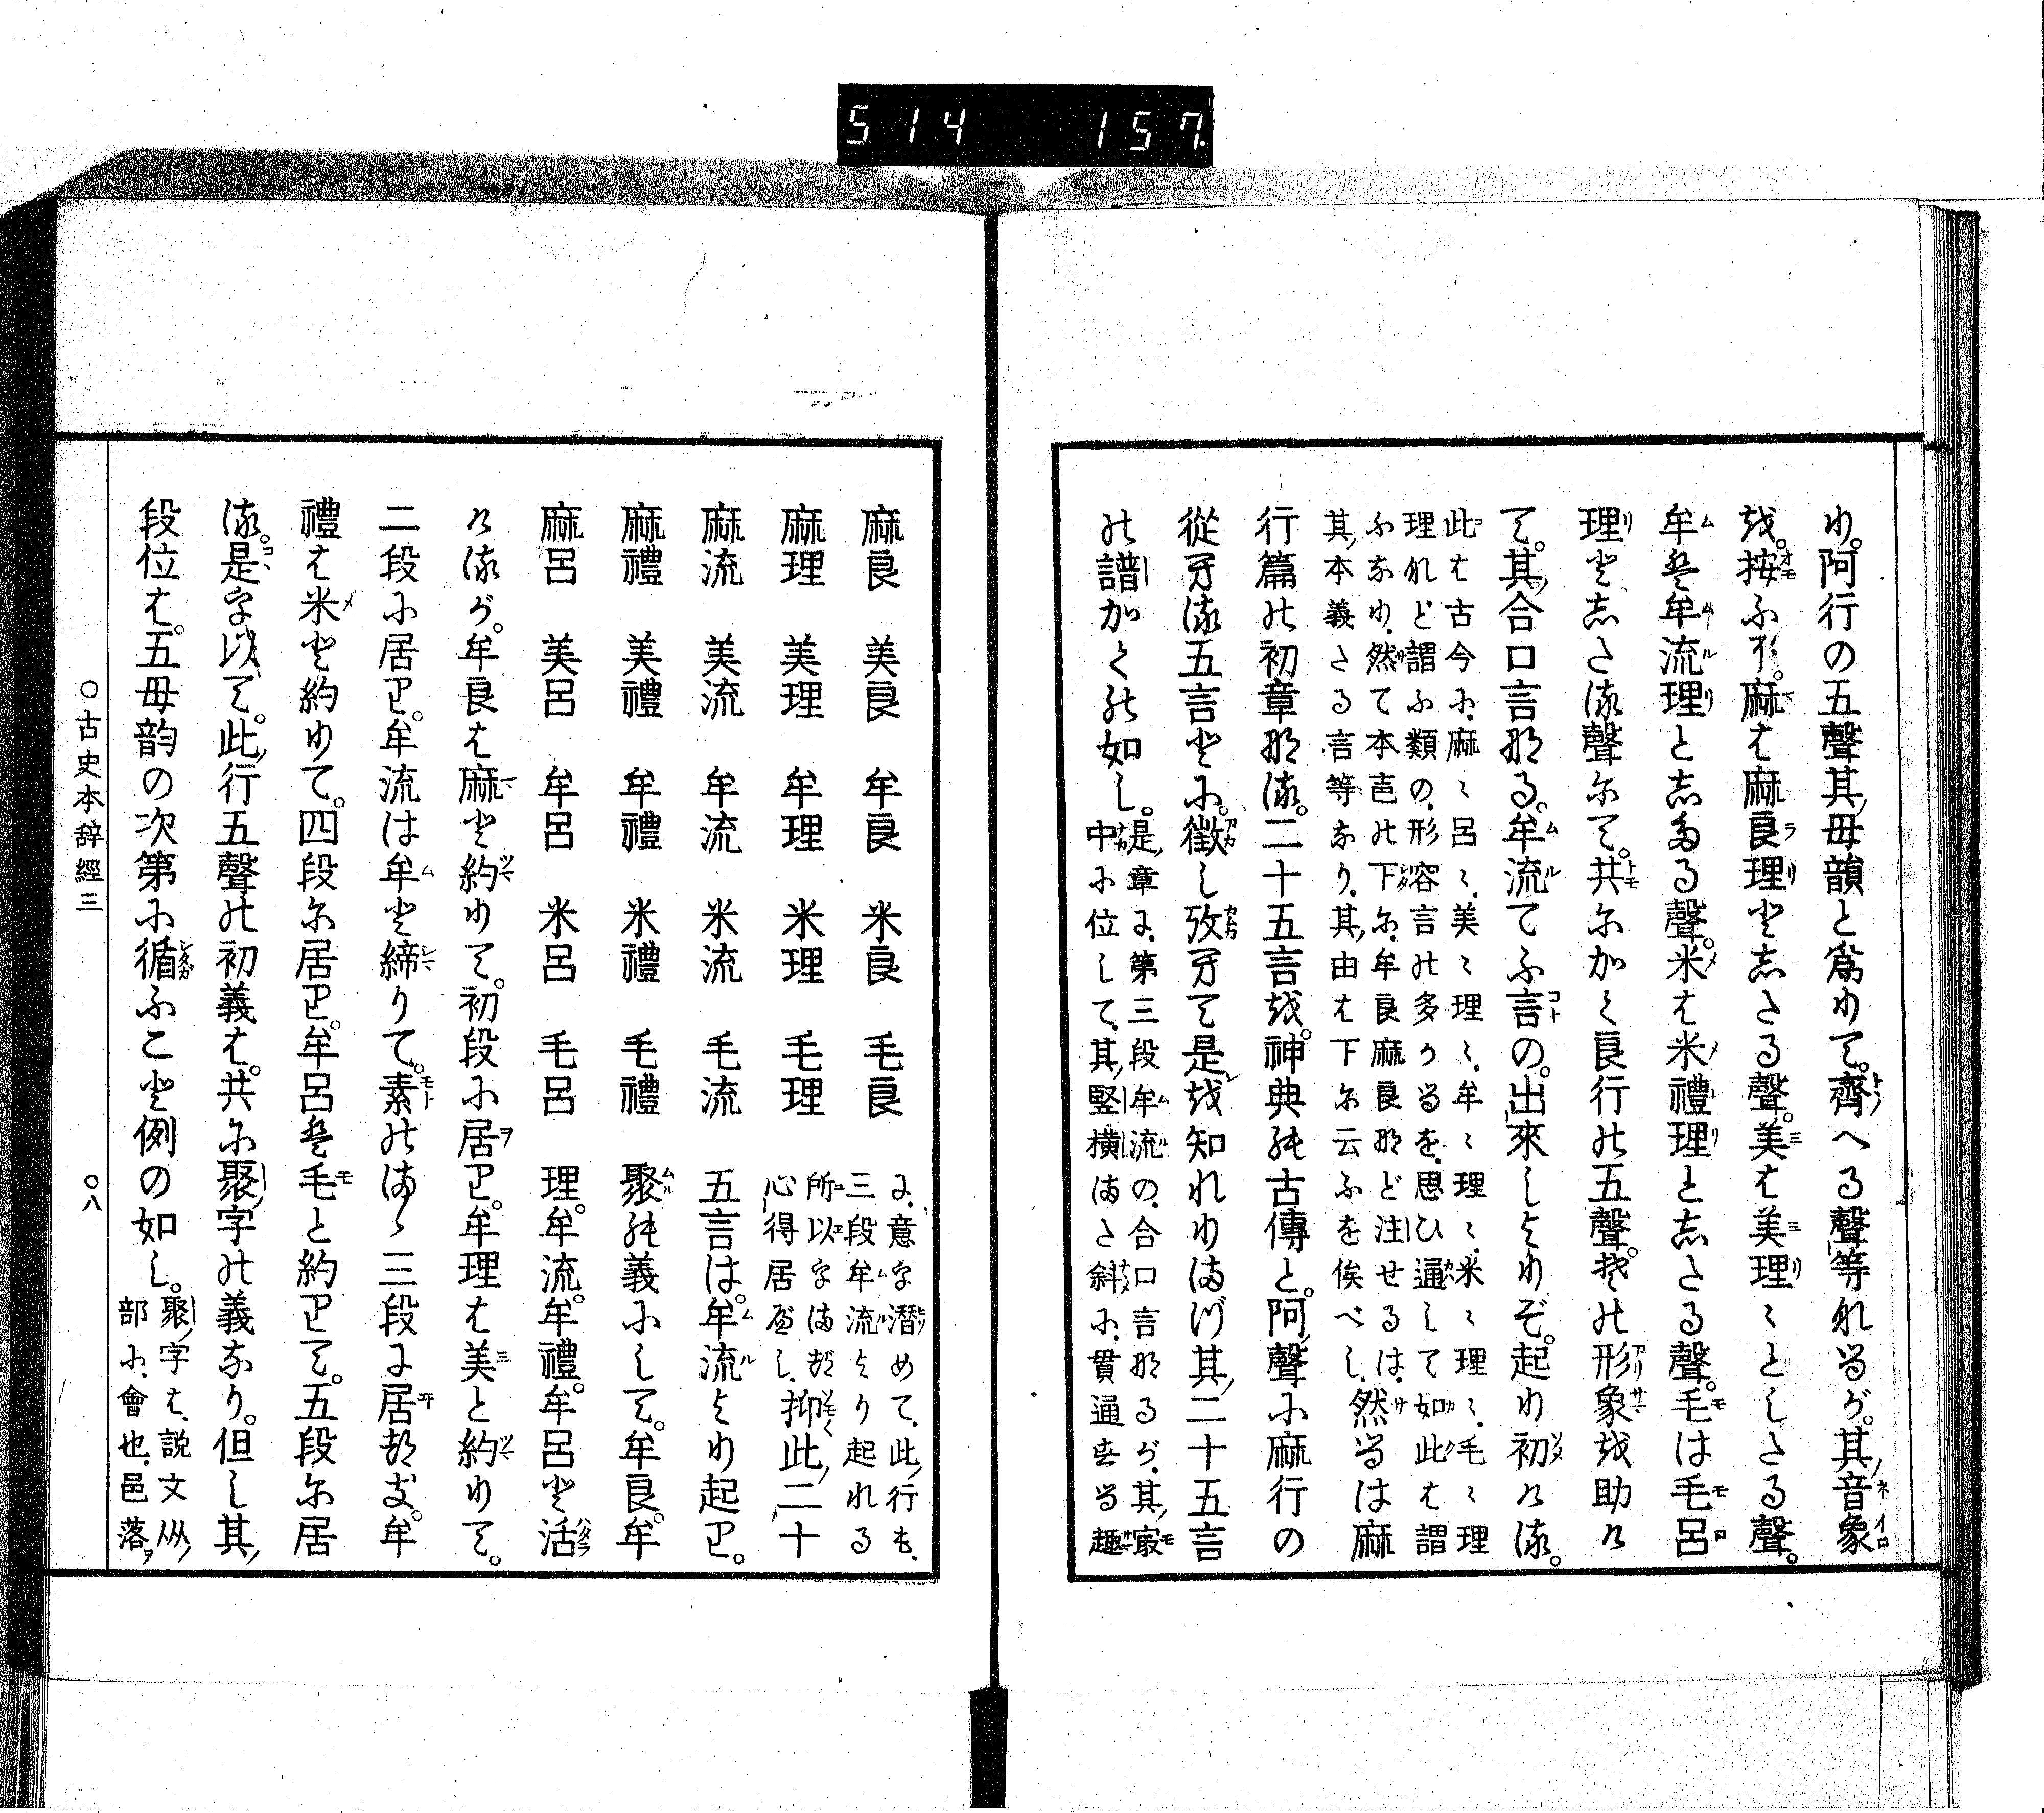 514 157.
り。阿行の五聲其ノ母韻と爲りて。齊へる聲等れるが。其ノ音象
を。按ふに。麻は麻良理としたる聲。美は美理〻としたる聲。
牟は牟流理としたる聲。米は米禮理としたる聲。毛は毛呂
理としたる聲にて。共にかく良行の五聲。その形象を助け
て。其ノ合口言なる。牟流てふ言の。出來しよりぞ。起り初ける。
此は古今に、麻〻呂〻、美〻理〻、牟〻理〻、米〻理〻、毛〻理
理れど謂ふ類の、形容言の多かるを、思ひ通して如此は謂
ふなり、然て本邑の下に、牟良麻良など注せるは、然るは麻
其ノ本義たる言等なり、其ノ由は下に云ふを俟べし、
行篇の初章なる。二十五言を。神典の古傳と。阿ノ聲に麻行の
從える五言とに。徴し攷えて是を知れりまづ其ノ二十五言
の譜かくの如し。
是ノ章は、第三段牟流の、合口言なるが、其ノ冣
中に位して、其ノ竪横また斜に、貫通せる趣
麻良 美良 牟良 米良 毛良
に、意を潜めて、此ノ行も、
三段牟流より起れる
麻理 美理 牟理 米理 毛理
所以をまづ
心得居べし、抑此ノ二十
麻流 美流 牟流 米流 毛流 五言は。牟流より起て。
麻禮 美禮 牟禮 米禮 毛禮 聚の義にして。牟良。牟
麻呂 美呂 牟呂 米呂 毛呂 理。牟流。牟禮。牟呂と活
けるが。牟良は麻と約りて。初段に居て。牟理は美と約りて。
二段に居て。牟流は牟と締りて。素のまゝ三段に居つき。牟
禮は米と約りて。四段に居て。牟呂は毛と約りて。五段に居
る。是を以て。此ノ行五聲の初義は。共に聚ノ字の義なり。但し其ノ
段位は。五母韵の次第に循ふこと例の如し。
聚ノ字は、説文㐺ノ
部に、會也、邑落ヲ
○古史本辭經三 ○八